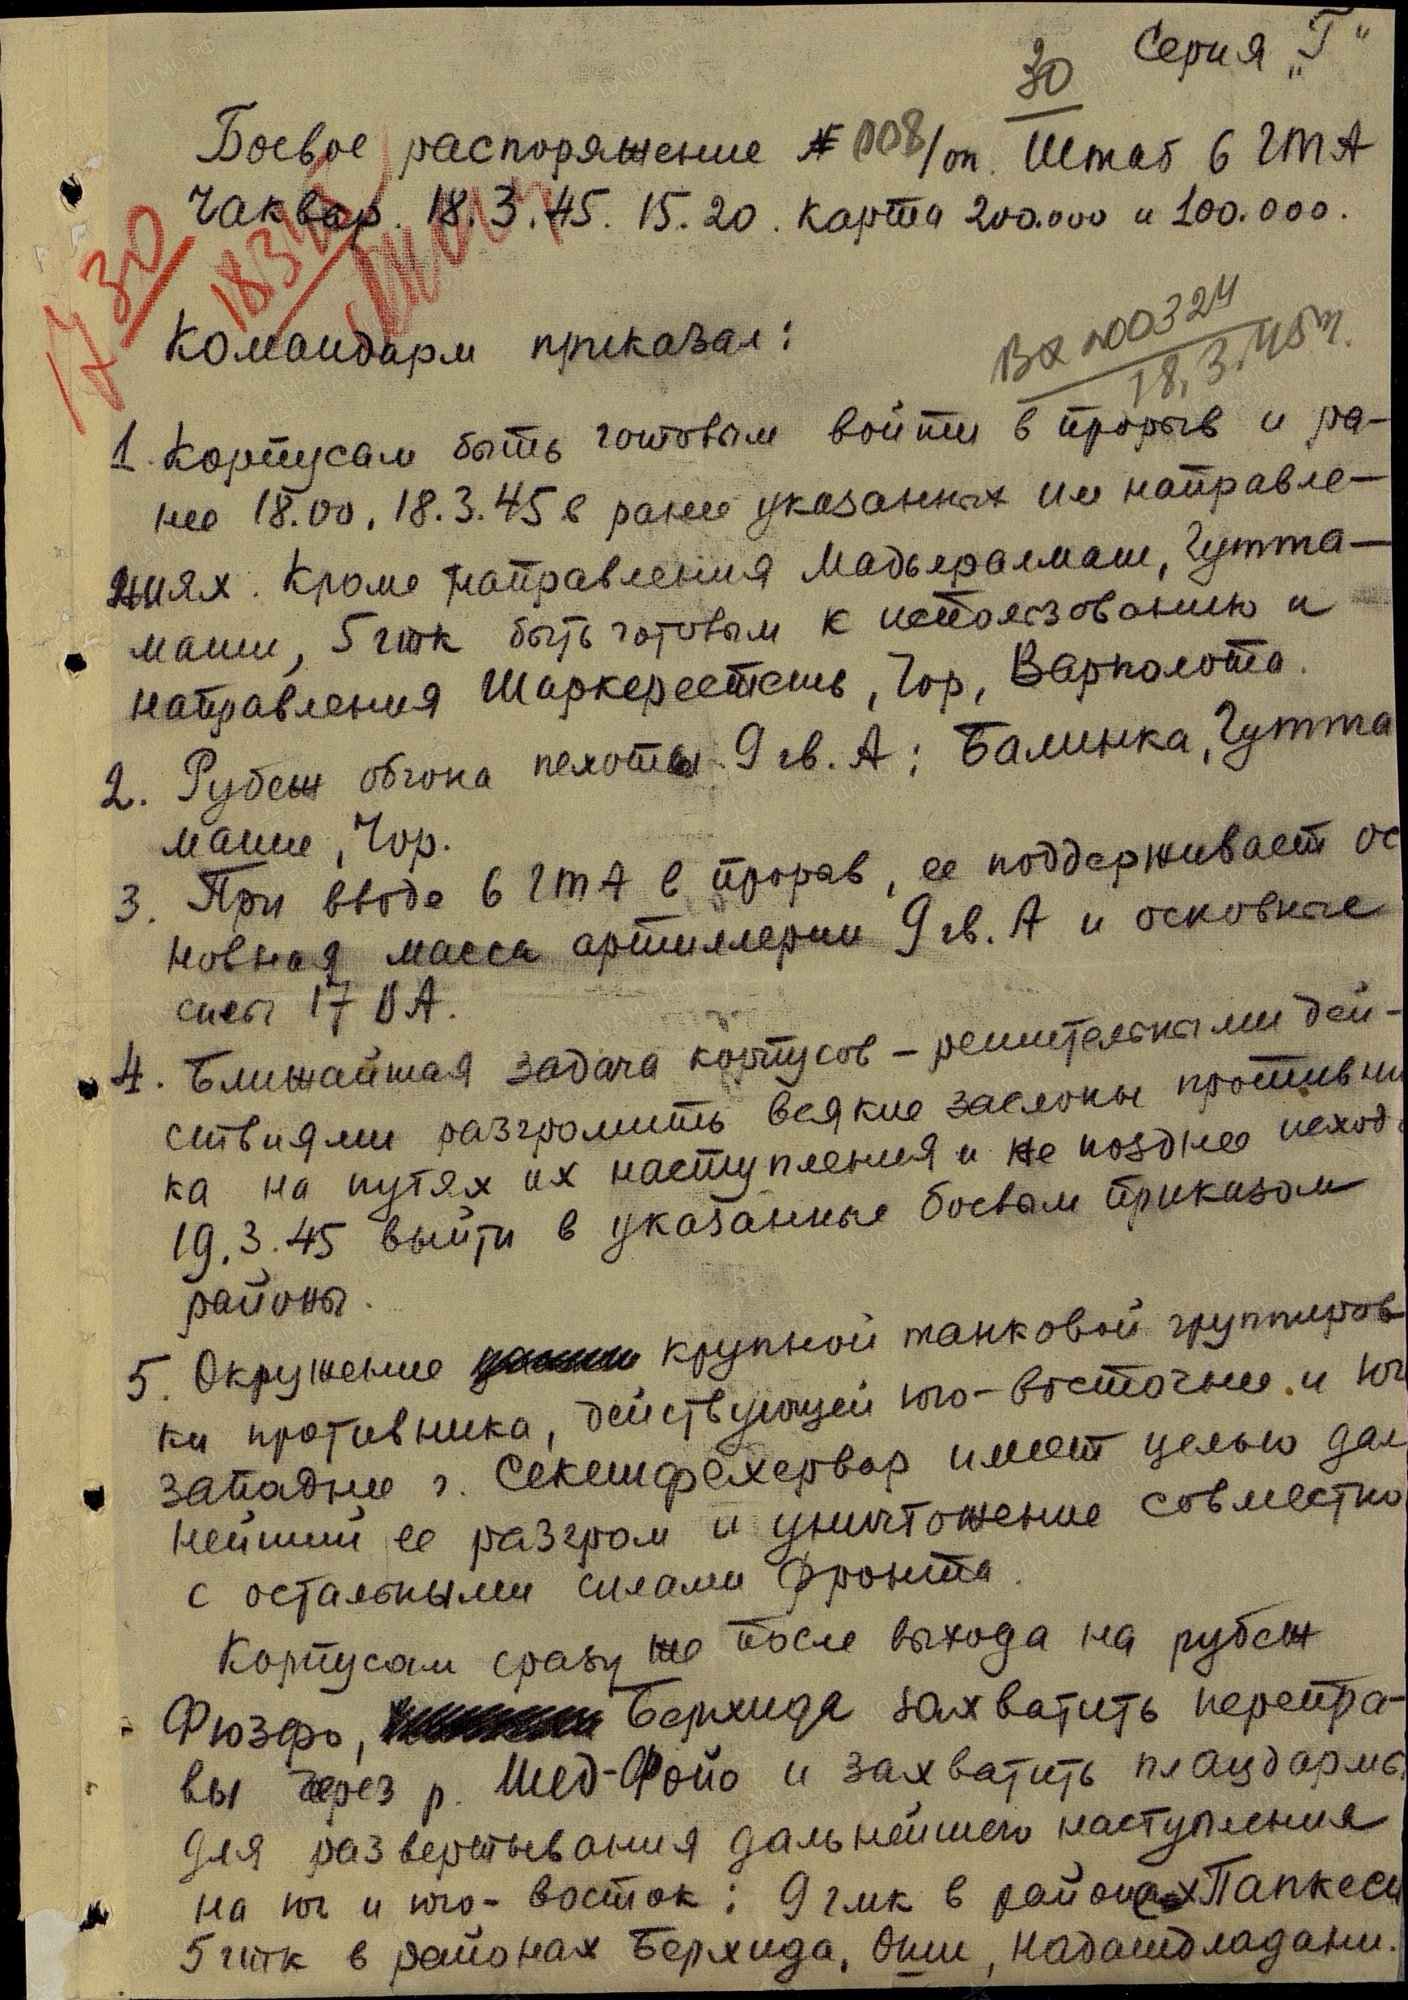 Серия „Г“
30
Боевое распоряжение № 008/оп. Штаб 6 ГТА
Чаквар. 18.3.45. 15.20. Карта 200.000 и 100.000.
17 30
18 3 45
Командарм приказал:
Вх №00324
18.3.45г.
1. Корпусам быть готовым войти в прорыв и ра-
нее 18.00. 18.3.45 в ранее указанных им направле-
ниях. Кроме направления Мадьяралмаш, Гутта-
маши, 5 гтк быть готовым к использованию и
направления Шаркерестеш, Чор, Варполота.
2. Рубеж обгона пехоты 9 гв. А: Балинка, Гутта
маши, Чор.
3. При вводе 6 ГТА в прорыв, ее поддерживает ос
новная масса артиллерии 9 гв. А и основные
силы 17 ВА.
4. Ближайшая задача корпусов – решительными дей-
ствиями разгромить всякие заслоны противни
ка на путях их наступления и не позднее исхода
19.3.45 выйти в указанные боевым приказом
районы.
5. Окружение крупной танковой группиров
ки противника, действующей юго-восточнее и юг
западнее г. Секешфехервар имеет целью дал
нейший ее разгром и уничтожение совместно
с остальными силами фронта.
Корпусам сразу же после выхода на рубеж
Фюзфо, Берхида захватить перепра-
вы через р. Шед-Фойо и захватить плацдармы
для развертывания дальнейшего наступления
на юг и юго-восток: 9 гмк в районах Папкеси
5 гтк в районах Берхида, Оши, Надашдладань.